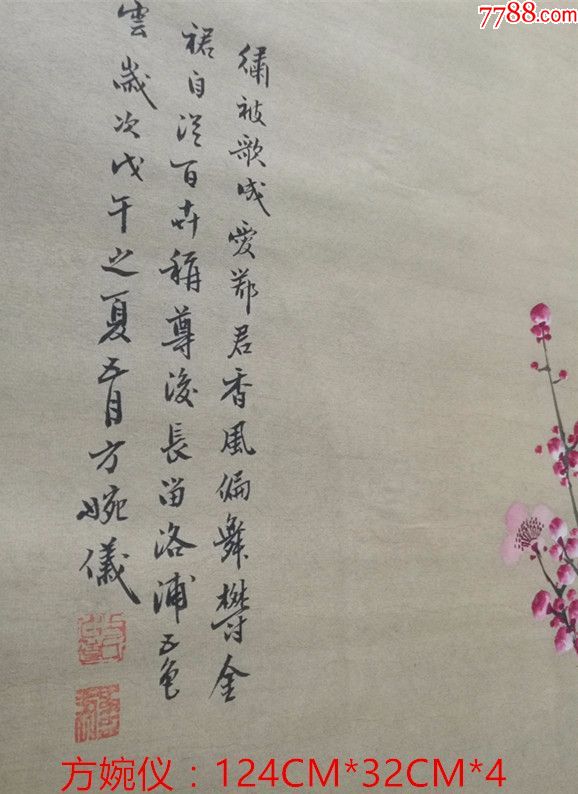 7788.com
繡被歌成愛鄂君香風偏舞鬱金
裙自從百卉稱尊後長留洛浦五色
雲歲次戊午之夏五月方婉儀
方婉仪：124CM*32CM*4